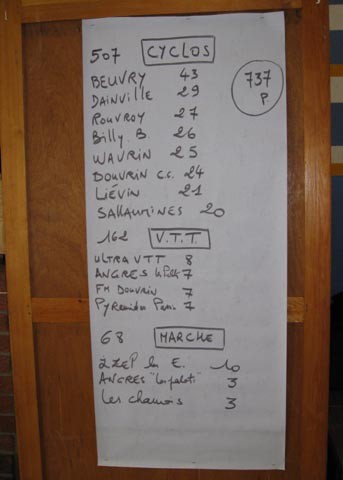 507 CYCLOS
737 P.
BEUVRY 43
DAINVILLE 29
ROUVROY 27
Billy B. 26
WAVRIN 25
DOUVRIN C.C. 24
LIÉVIN 21
SALLAUMINES 20
162 V.T.T.
ULTRA VTT 8
ANGRES 7
FM DOUVRIN 7
Pyramides 7
68 MARCHE
E. 10
ANGRES 3
Les chamois 3